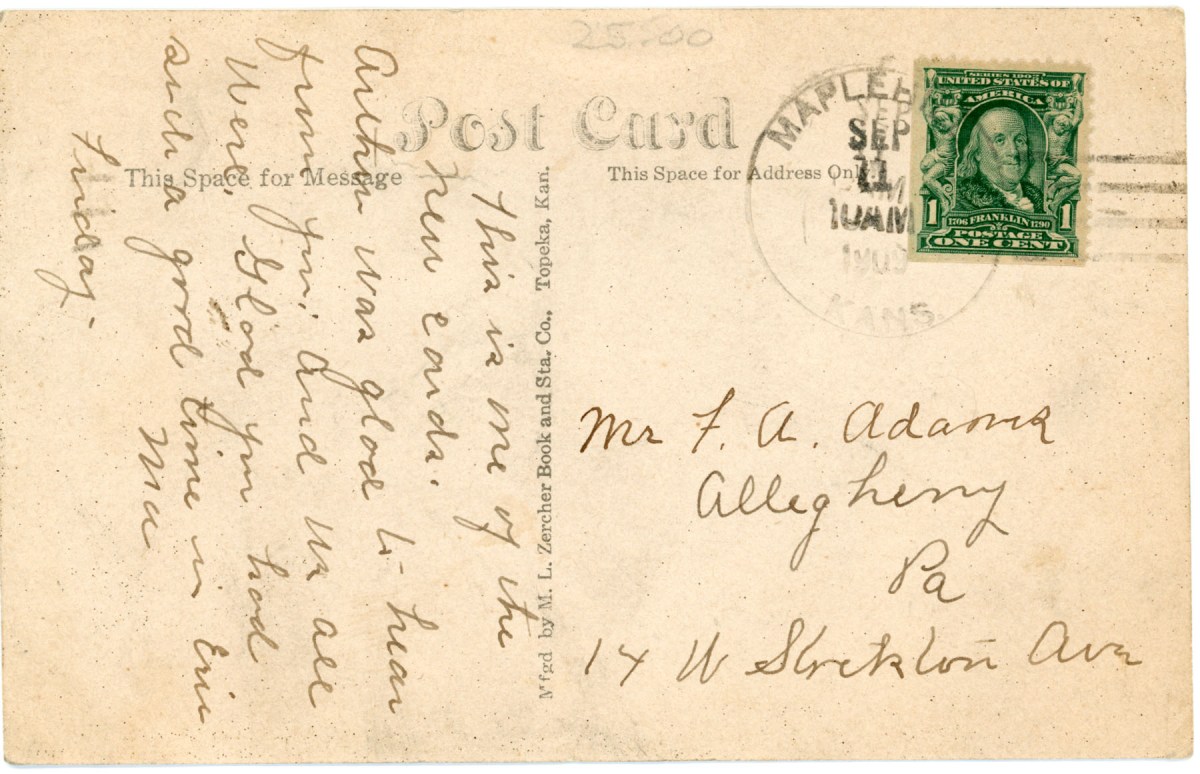 25.00
Post Card
This Space for Message
This Space for Address Only.
Mfgd by M. L. Zercher Book and Sta. Co., Topeka, Kan.
SERIES 1902
UNITED STATES OF
AMERICA
1706 FRANKLIN 1790
1 1
POSTAGE
ONE CENT
MAPLEH
SEP
11
10AM
190
KANS.
This is one of the
new cards.
Arthur was glad to hear
from you, and us all
were, Glad you had
such a good time in Erie
Friday.
Ma
Mr F. A.
Allegheny
Pa
14 W Ave